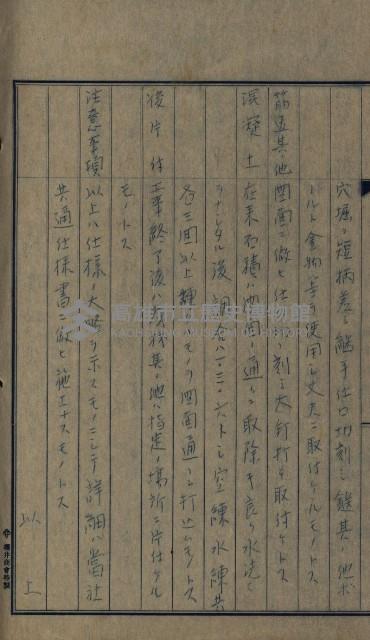 穴堀ニ短柄差シ継手仕口切刻ミ鎹其ノ他ボ
ールト金物等ヲ使用シ丈夫ニ取付ケルモノトス
筋違其他 図面ニ倣ヒ仕口切刻ミ大釘打チ取付ケトス
混凝土 在来石積ハ図面ノ通リ取除キ良ク水洗ヒ
ヲナシタル後 調合ハ一・三・六トシ空練水練共
各三回以上練リタルモノヲ図面通リニ打込ムモノトス
後片付 工事終了後ハ 其ノ他ハ指定ノ場所ニ片付ケル
モノトス
注意事項 以上ハ仕様ノ大略ヲ示スモノニシテ詳細ハ当社
共通仕様書ニ倣ヒ施工ナスモノトス
以上
高雄市立歷史博物館
KAOHSIUNG MUSEUM OF HISTORY
櫻井商會特製